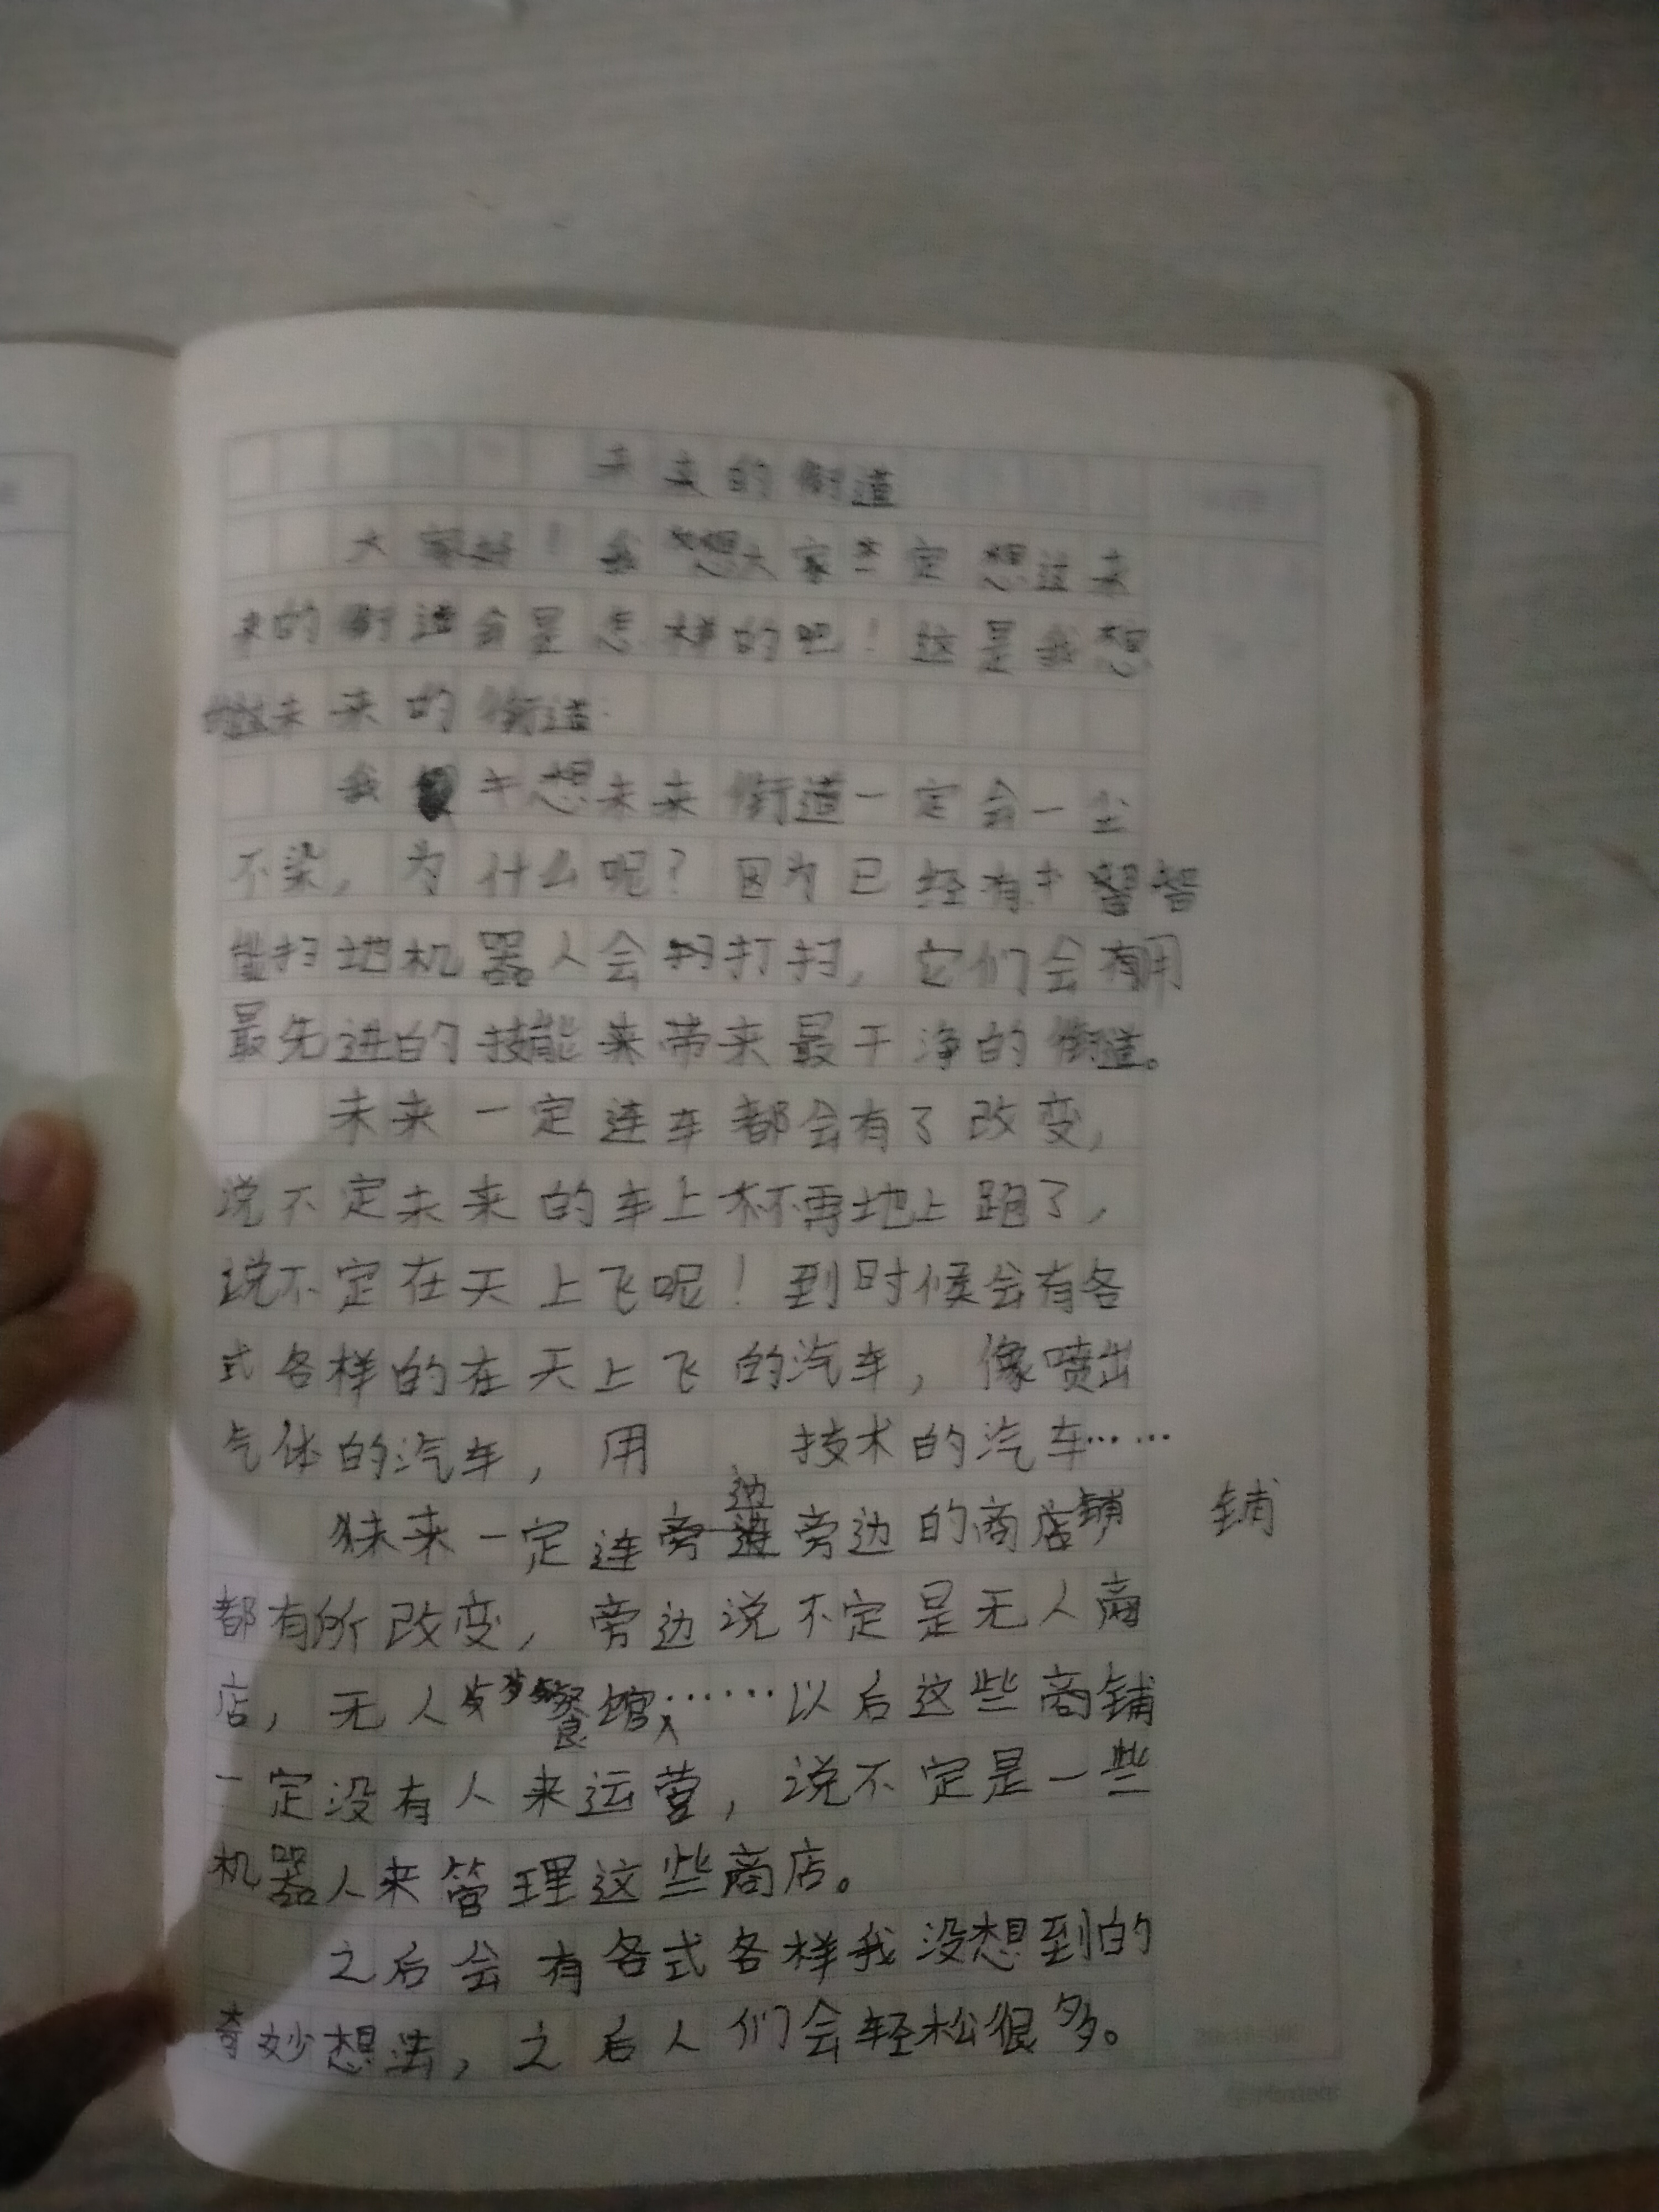 未来的街道
大家好！我想大家一定想过未
来的街道会是怎样的吧！这是我想
未来的街道
我想未来街道一定会一尘
不染，为什么呢？因为已经有智
能扫地机器人会打扫，它们会用
最先进的技能来带来最干净的街道。
未来一定连车都会有了改变，
说不定未来的车上不再地上跑了，
说不定在天上飞呢！到时候会有各
式各样的在天上飞的汽车，像喷出
气体的汽车，用 技术的汽车……
未来一定连旁边旁边的商店铺 铺
都有所改变，旁边说不定是无人商
店，无人餐馆……以后这些商铺
一定没有人来运营，说不定是一些
机器人来管理这些商店。
之后会有各式各样我没想到的
奇妙想法，之后人们会轻松很多。